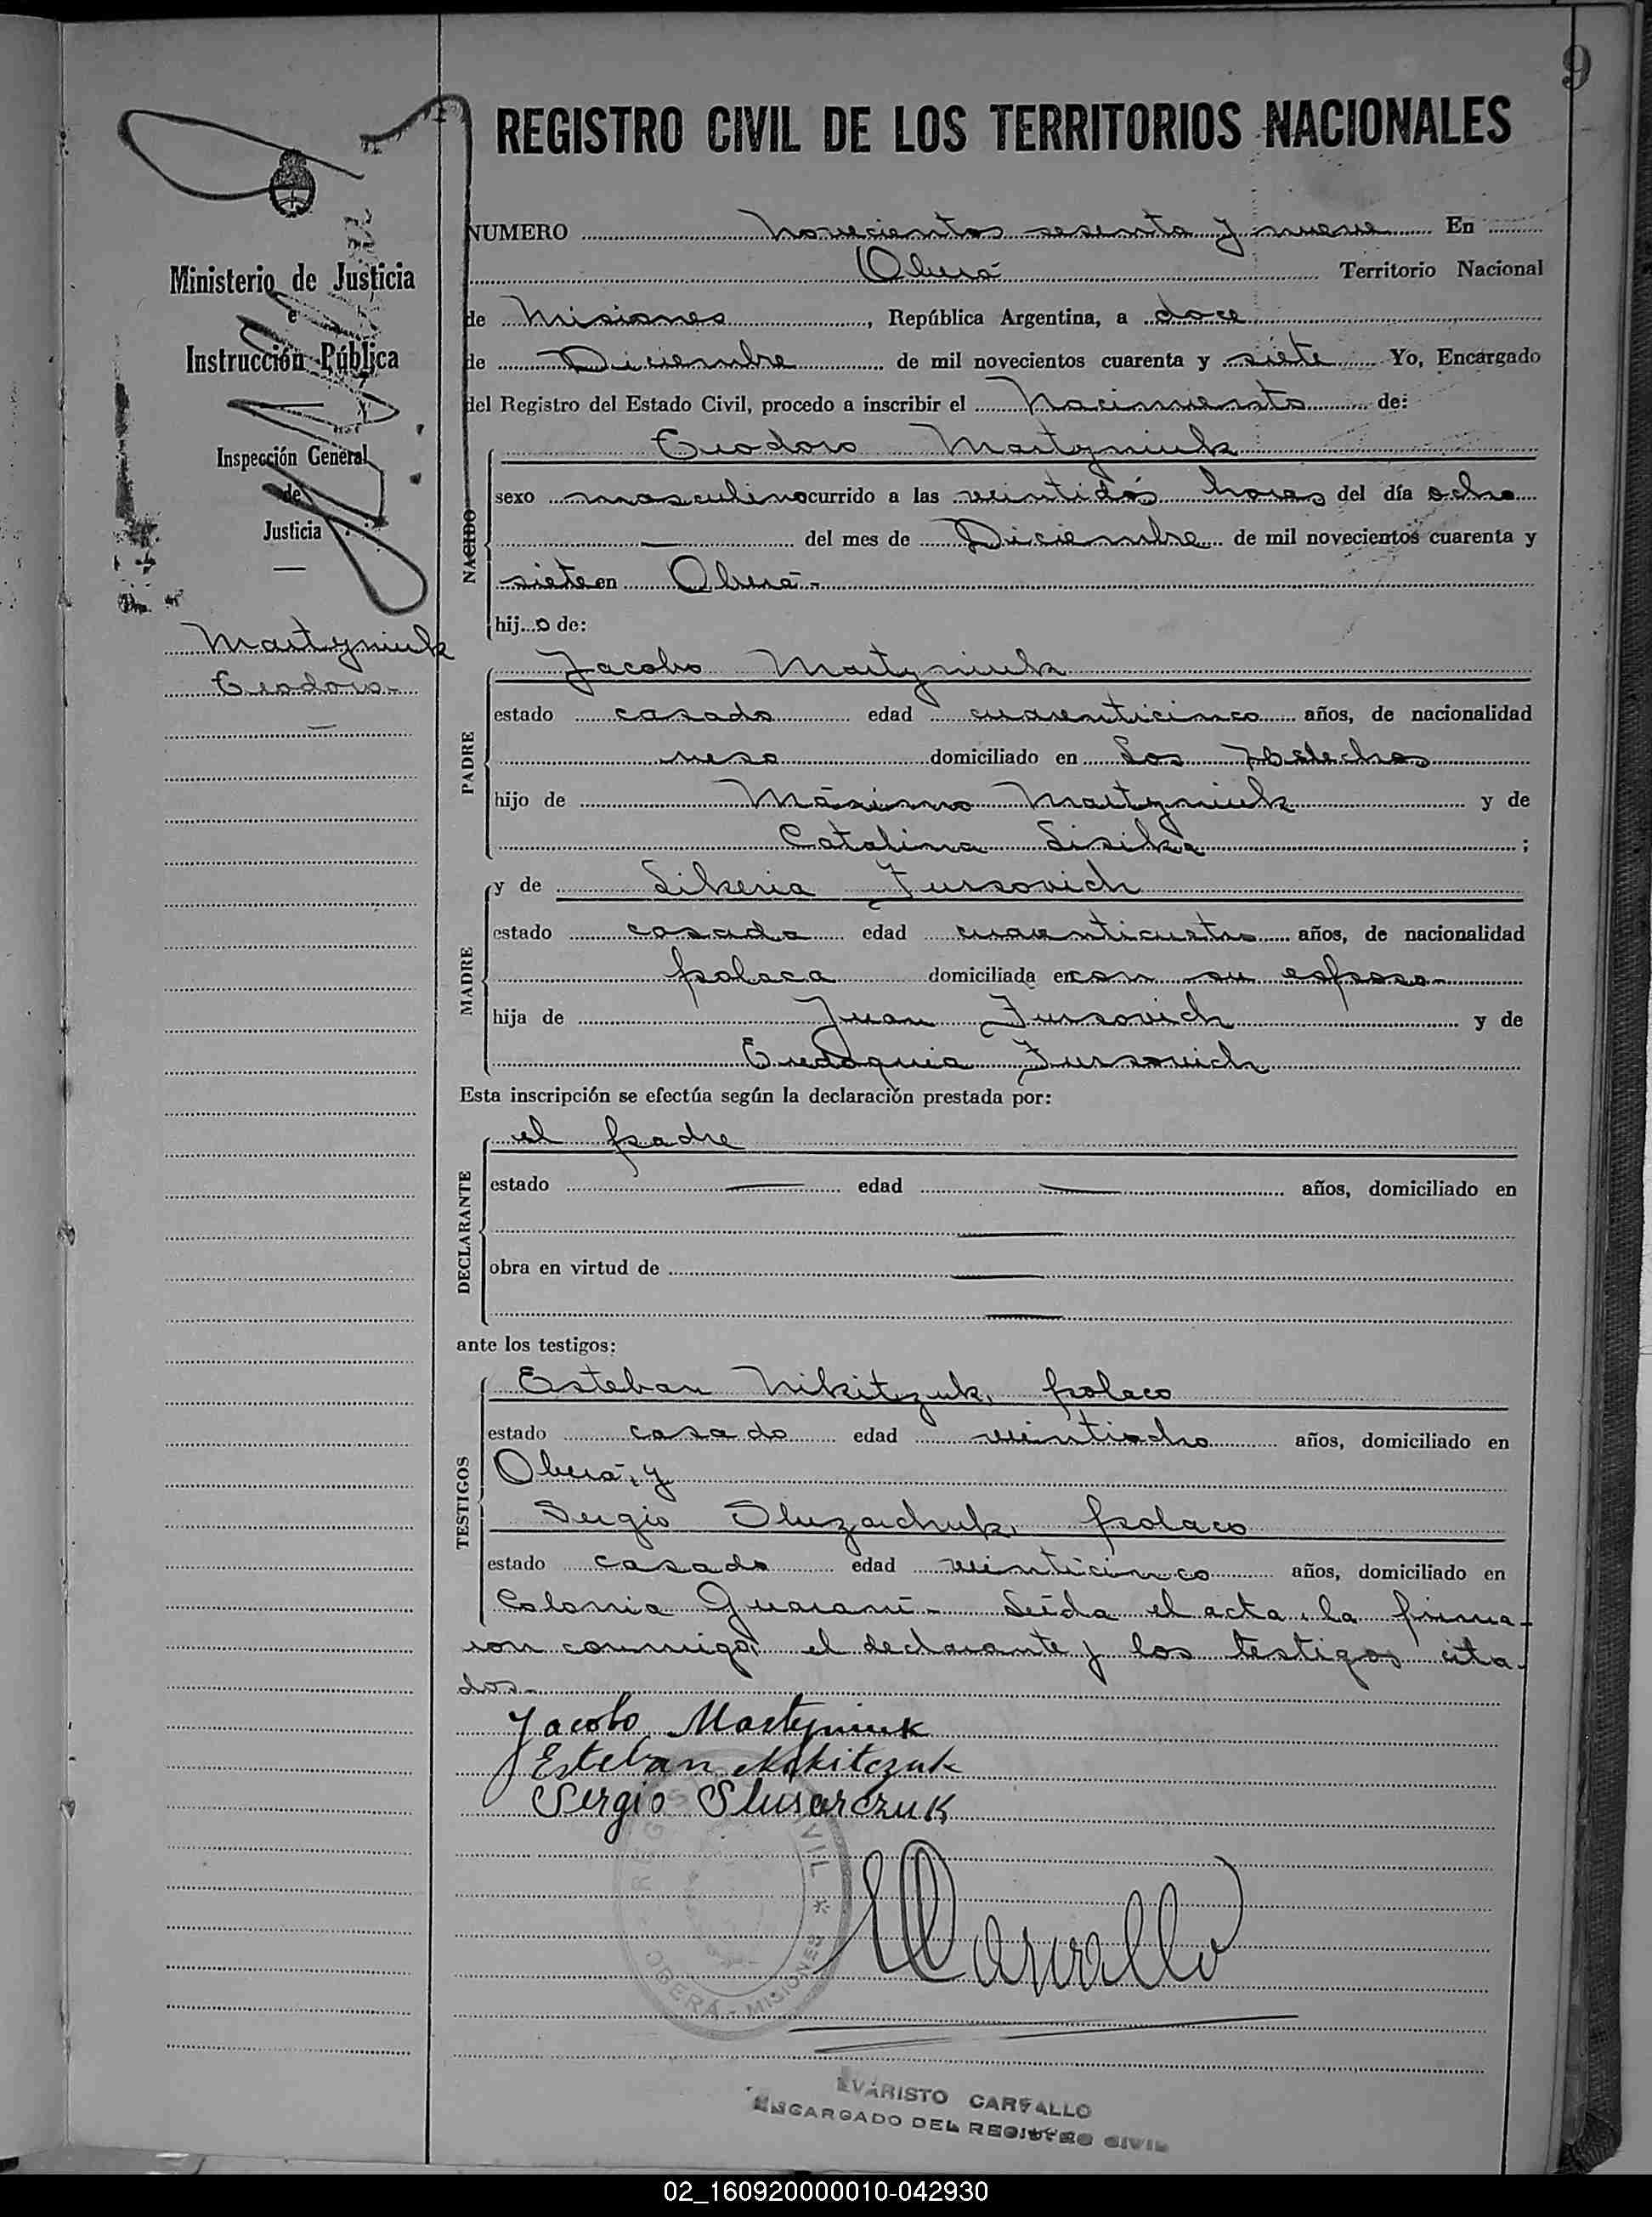 9
REGISTRO CIVIL DE LOS TERRITORIOS NACIONALES
Ministerio de Justicia
e
Instrucción Pública
Inspección General
de
Justicia
Martyniuk
Teodoro-
NUMERO novecientos sesenta y nueve En
Oberá Territorio Nacional
de Misiones, República Argentina, a doce
de Diciembre de mil novecientos cuarenta y siete Yo, Encargado
del Registro del Estado Civil, procedo a inscribir el Nacimiento de:
NACIDO
Teodoro Martyniuk
sexo masculino ocurrido a las veintidós horas del día ocho
— del mes de Diciembre de mil novecientos cuarenta y
siete en Oberá-
hijo de:
PADRE
Jacobo Martyniuk
estado casado edad cuarenticinco años, de nacionalidad
ruso domiciliado en Los Helechos
hijo de Máximo Martyniuk y de
Catalina Lisika;
MADRE
y de Likeria Jursovich
estado casada edad cuarenticuatro años, de nacionalidad
polaca domiciliada en con su esposo-
hija de Juan Jursovich y de
Eudoquia Jursovich
Esta inscripción se efectúa según la declaración prestada por:
DECLARANTE
el padre
estado — edad — años, domiciliado en
—
obra en virtud de —
—
ante los testigos:
TESTIGOS
Esteban Nikitzuk, polaco
estado casado edad veintiocho años, domiciliado en
Oberá, y
Sergio Sluzachuk, polaco
estado casado edad veinticinco años, domiciliado en
Colonia Guaraní- Leída el acta, la firma-
ron conmigo el declarante y los testigos cita-
dos-
Jacobo Martyniuk
Esteban Nikitczuk
Sergio Slusarczuk
REGISTRO CIVIL * OBERÁ - MISIONES
ECarvallo
EVARISTO CARVALLO
ENCARGADO DEL REGISTRO CIVIL
02_160920000010-042930